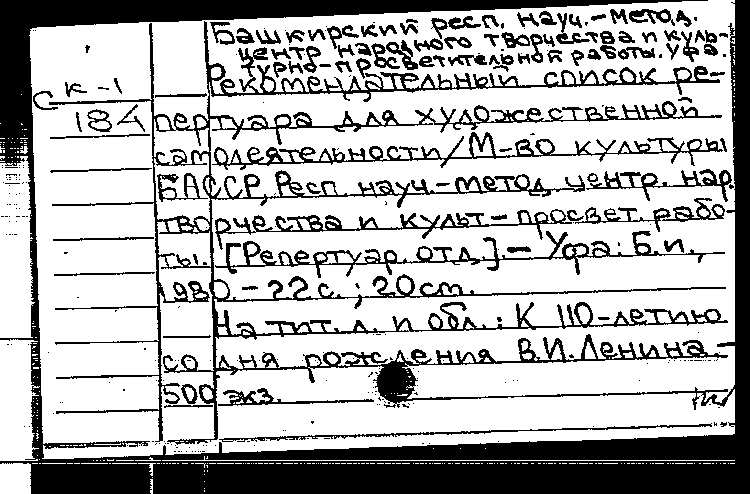 Башкирский респ. науч.-метод.
центр народного творчества и куль-
турно-просветительной работы. Уфа.
Рекомендательный список ре-
С к-1
184
пертуара для художественной
самодеятельности/М-во культуры
БАССР, Респ. науч.-метод. центр. нар.
творчества и культ-просвет. рабо-
ты. [Репертуар. отд.].- Уфа: Б.и.,
1980.-22с.; 20см.
На тит. л. и обл.: К 110-летию
со дня рождения В.И.Ленина.-
500 экз.